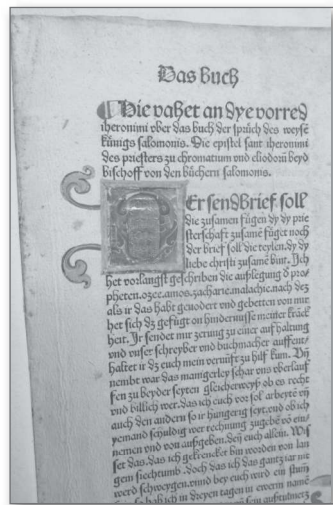 Das buch
Hie vahet an dye vorred
iheronimi vber das buch der sprüch des weysē
künigs salomonis. Die epistel sant iheronimi
des priesters zu chromatium vnd eliodorū beyd
bischoff von den büchern salomonis.
Er sendbrief soll
die zusamen fügen dy dy prie
sterschafft zusamē füget noch
der brief soll die teylen. dy dy
liebe christi zusamē bint. Ich
het vorlangst geschriben die außlegung d pro
pheten. ozee. amos. zacharie. malachie. nach dez
als ir das habt geuodert vnd gebetten von mir
het sich dz gefügt on hindernusse meiner kräck
heit. Ir sendet mir zerung zu einer auf haltung
vnd vnser schreyber vnd buchmacher auffent
haltet ir dz euch mein vernüfft zu hilf kum. Vñ
nembt war das mangerley schar vns vberlauf
fen zu beyder seyten gleicherweyß ob es recht
vnd billich wer. das ich euch vor sol arbeytē vñ
auch den andern so ir hungerig seyt. vnd ob ich
yemand schuldig wer rechnung zugebē vō ein
nemen vnd von außgeben. den euch allein. Wis
set das. das ich gekrencket bin worden von lan
gem siechtumb. Doch das ich das gantz iar nit
werd schweygen. vnnd bey euch wird ein stum
hab ich in dreyen tagen in ewerm namē